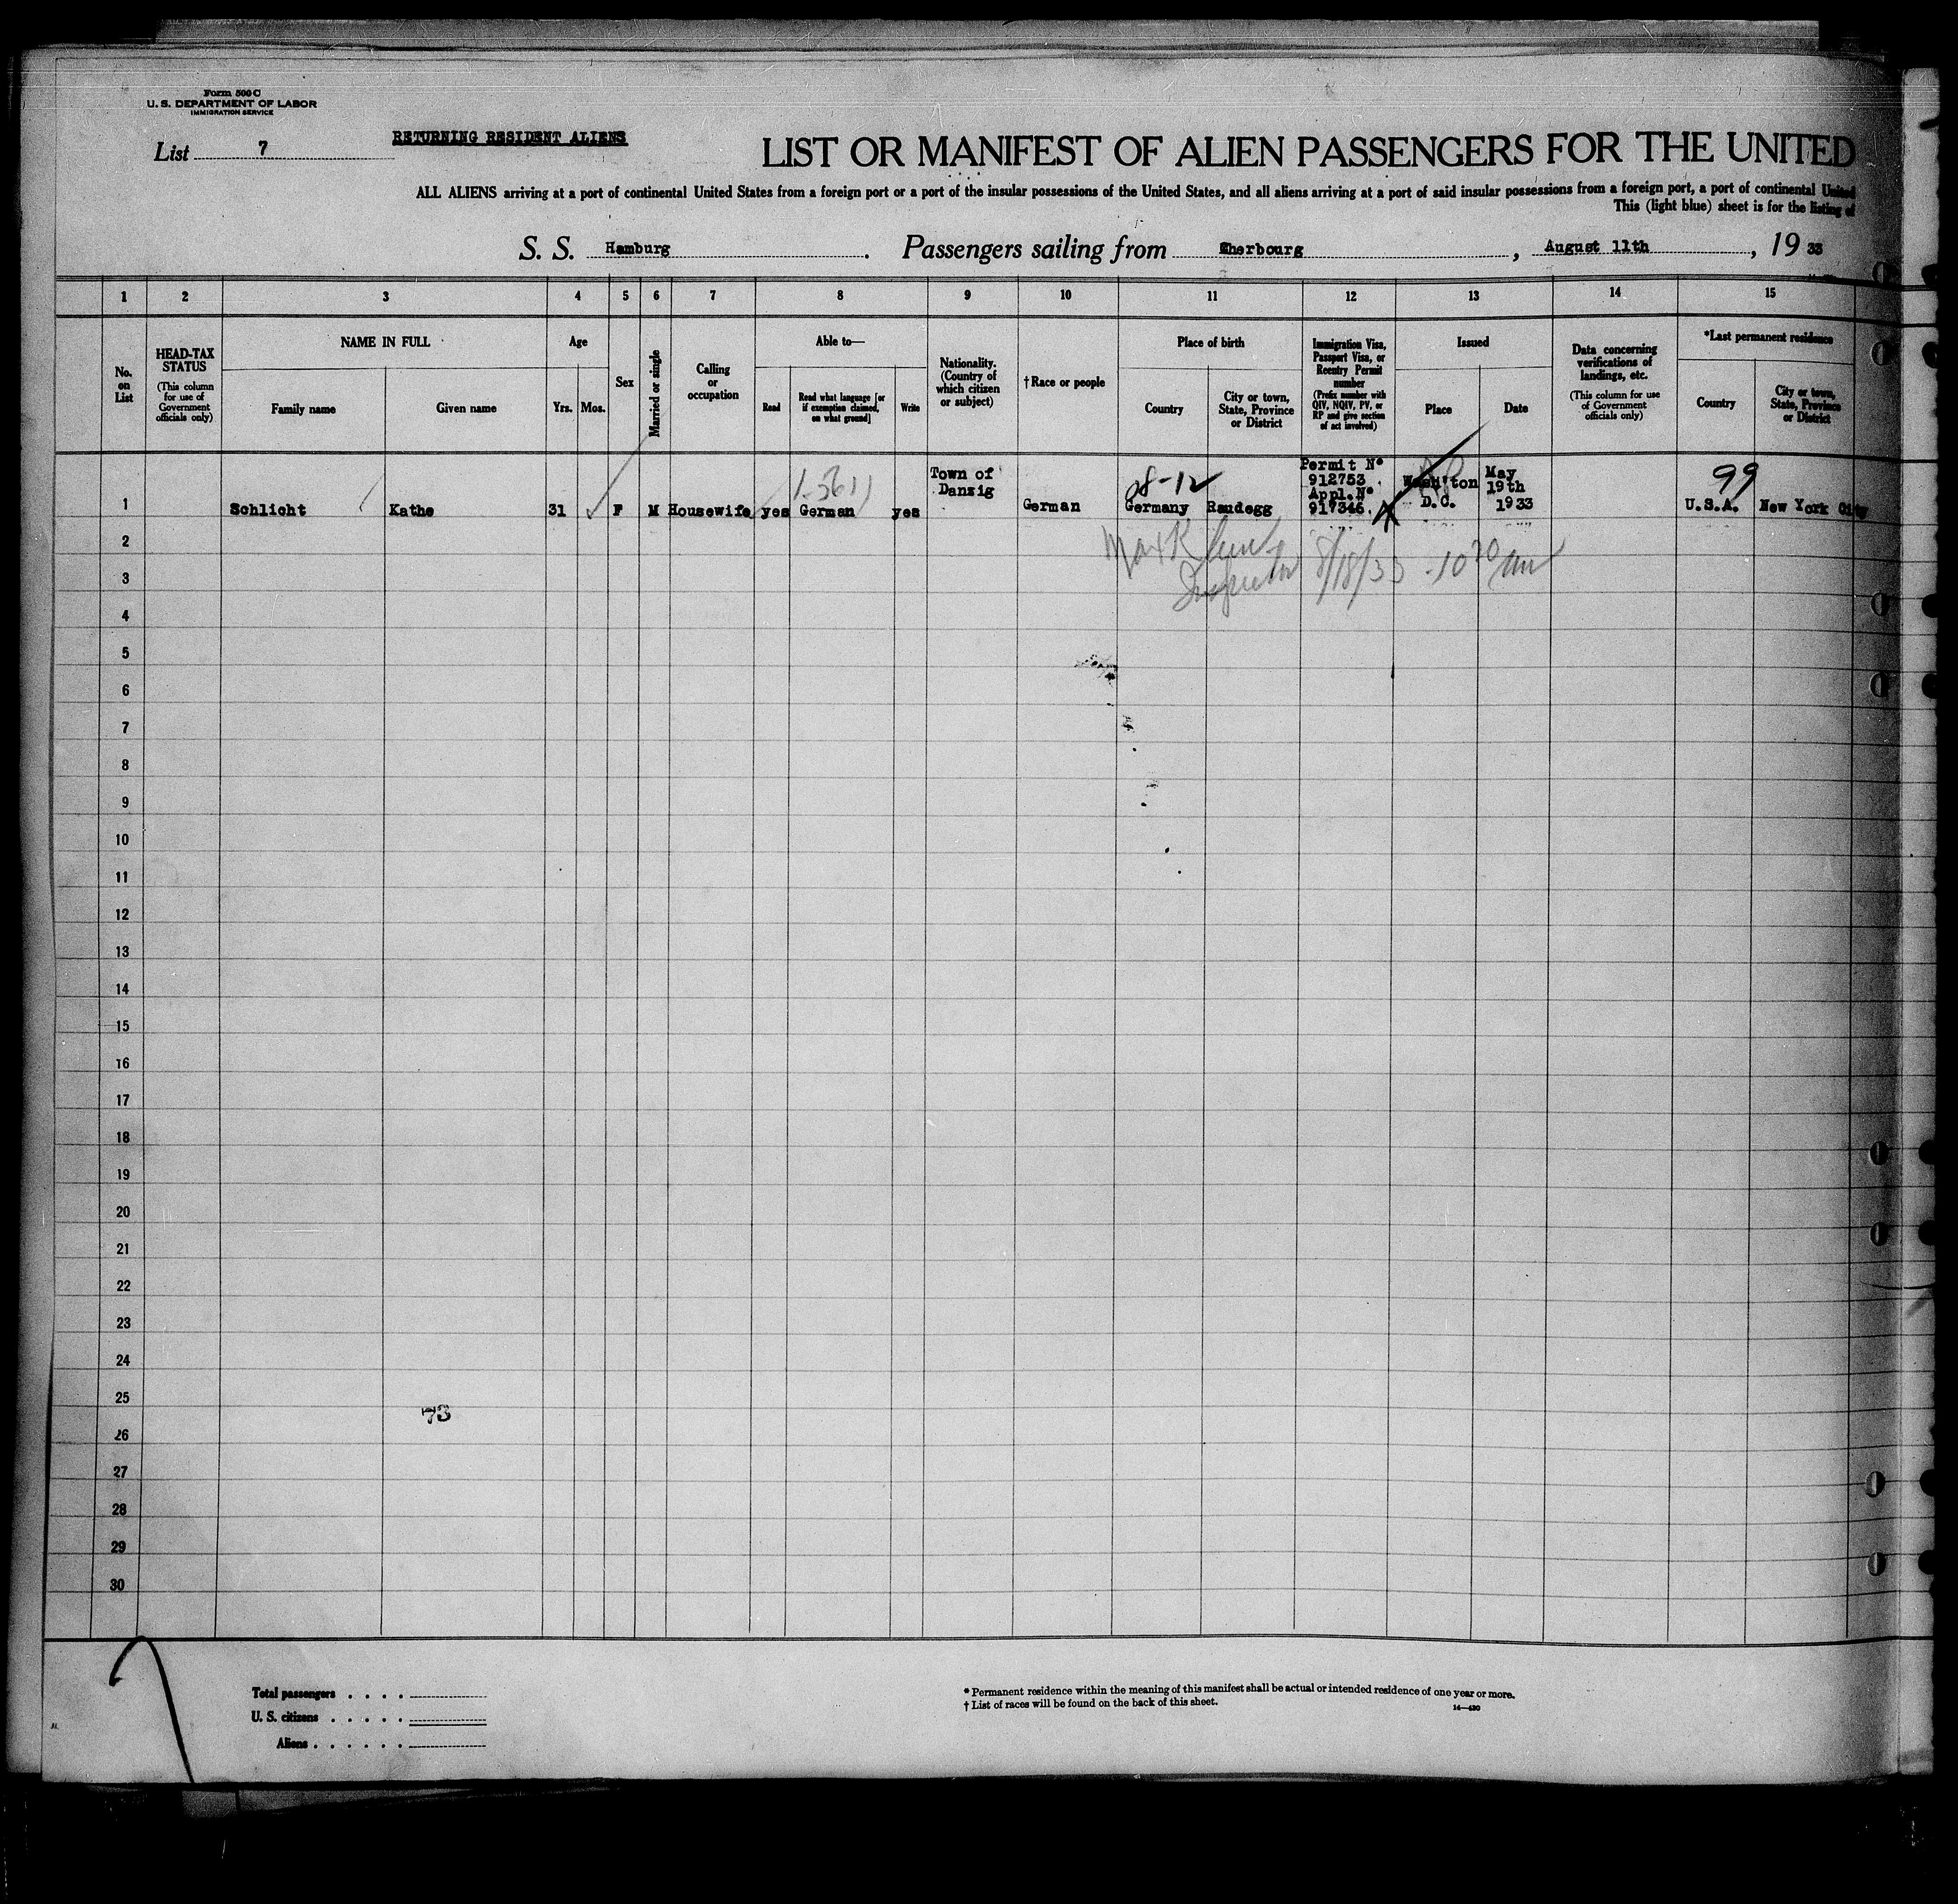 Form 500 C
U. S. DEPARTMENT OF LABOR
IMMIGRATION SERVICE
List 7
RETURNING RESIDENT ALIENS
LIST OR MANIFEST OF ALIEN PASSENGERS FOR THE UNITED
ALL ALIENS arriving at a port of continental United States from a foreign port or a port of the insular possessions of the United States, and all aliens arriving at a port of said insular possessions from a foreign port, a port of continental United
This (light blue) sheet is for the listing of
S. S. Hamburg. Passengers sailing from Cherbourg, August 11th, 19 33
1 2 3 4 5 6 7 8 9 10 11 12 13 14 15
No. on List
HEAD-TAX STATUS
(This column for use of Government officials only)
NAME IN FULL
Family name
Given name
Age
Yrs.
Mos.
Sex
Married or single
Calling or occupation
Able to—
Read
Read what language [or if exemption claimed, on what ground]
Write
Nationality. (Country of which citizen or subject)
†Race or people
Place of birth
Country
City or town, State, Province or District
Immigration Visa, Passport Visa, or Reentry Permit number
(Prefix number with QIV, NQIV, PV, or RP and give section of act involved)
Issued
Place
Date
Data concerning verifications of landings, etc.
(This column for use of Government officials only)
*Last permanent residence
Country
City or town, State, Province or District
1 Schlicht Kathe 31 F M Housewife yes German yes Town of Danzig German Germany Raudegg Permit No 912753. Appl.No 917346. Wash'ton D.C. May 19th 1933 U.S.A. New York City
08-12
99
8/18/33 10 30 am
Inspector
2
3
4
5
6
7
8
9
10
11
12
13
14
15
16
17
18
19
20
21
22
23
24
25
26
27
28
29
30
73
Total passengers . . . .
U. S. citizens . . . . .
Aliens . . . . . .
* Permanent residence within the meaning of this manifest shall be actual or intended residence of one year or more.
† List of races will be found on the back of this sheet.
14—430